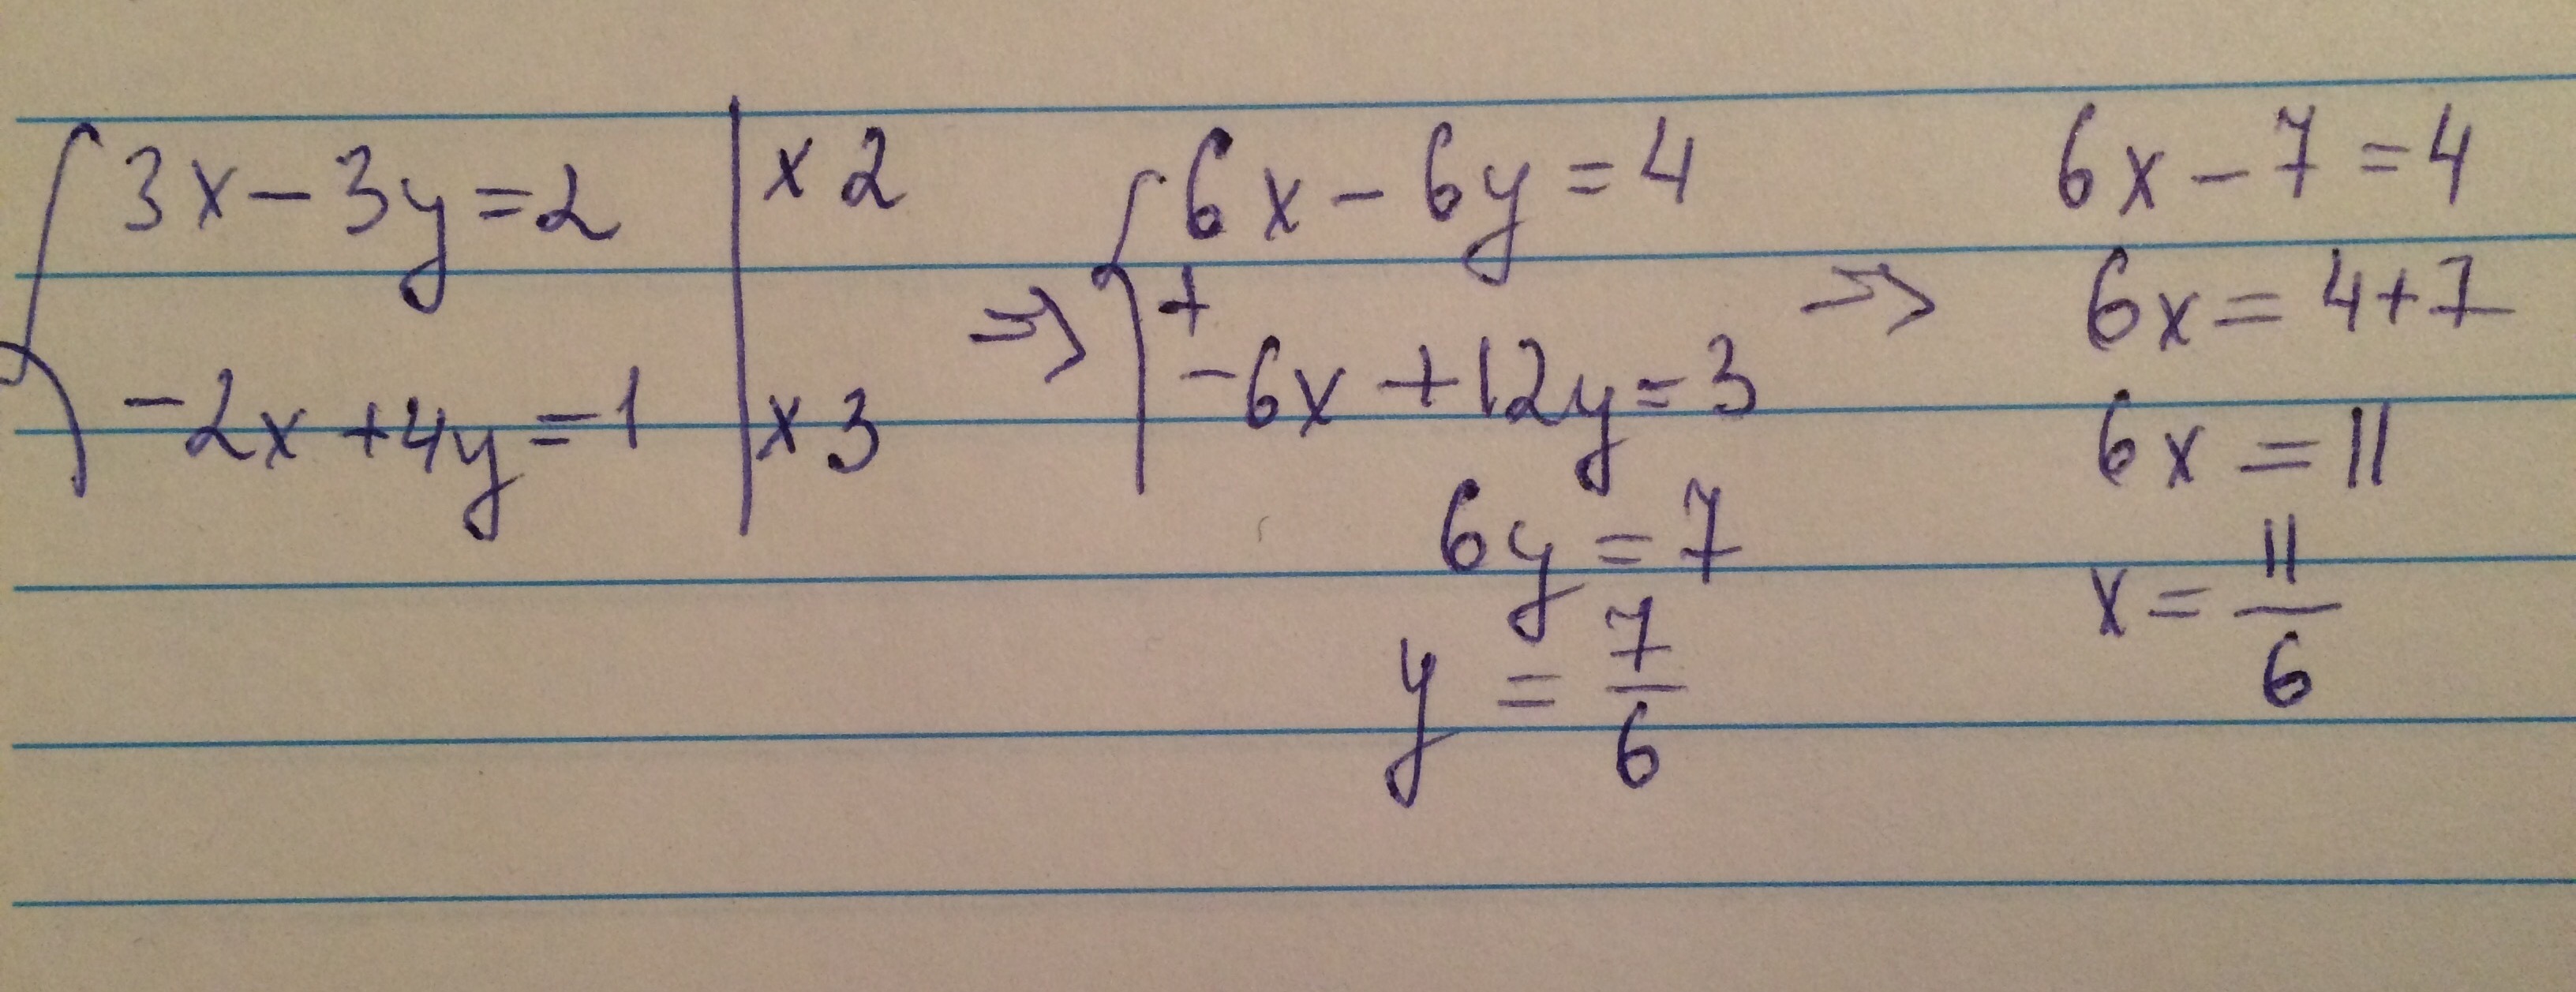 3x - 3y = 2 | x 2
-2x + 4y = 1 | x 3
⇒ { 6x - 6y = 4
+
-6x + 12y = 3
6y = 7
y = 7/6
⇒ 6x - 7 = 4
6x = 4 + 7
6x = 11
x = 11/6